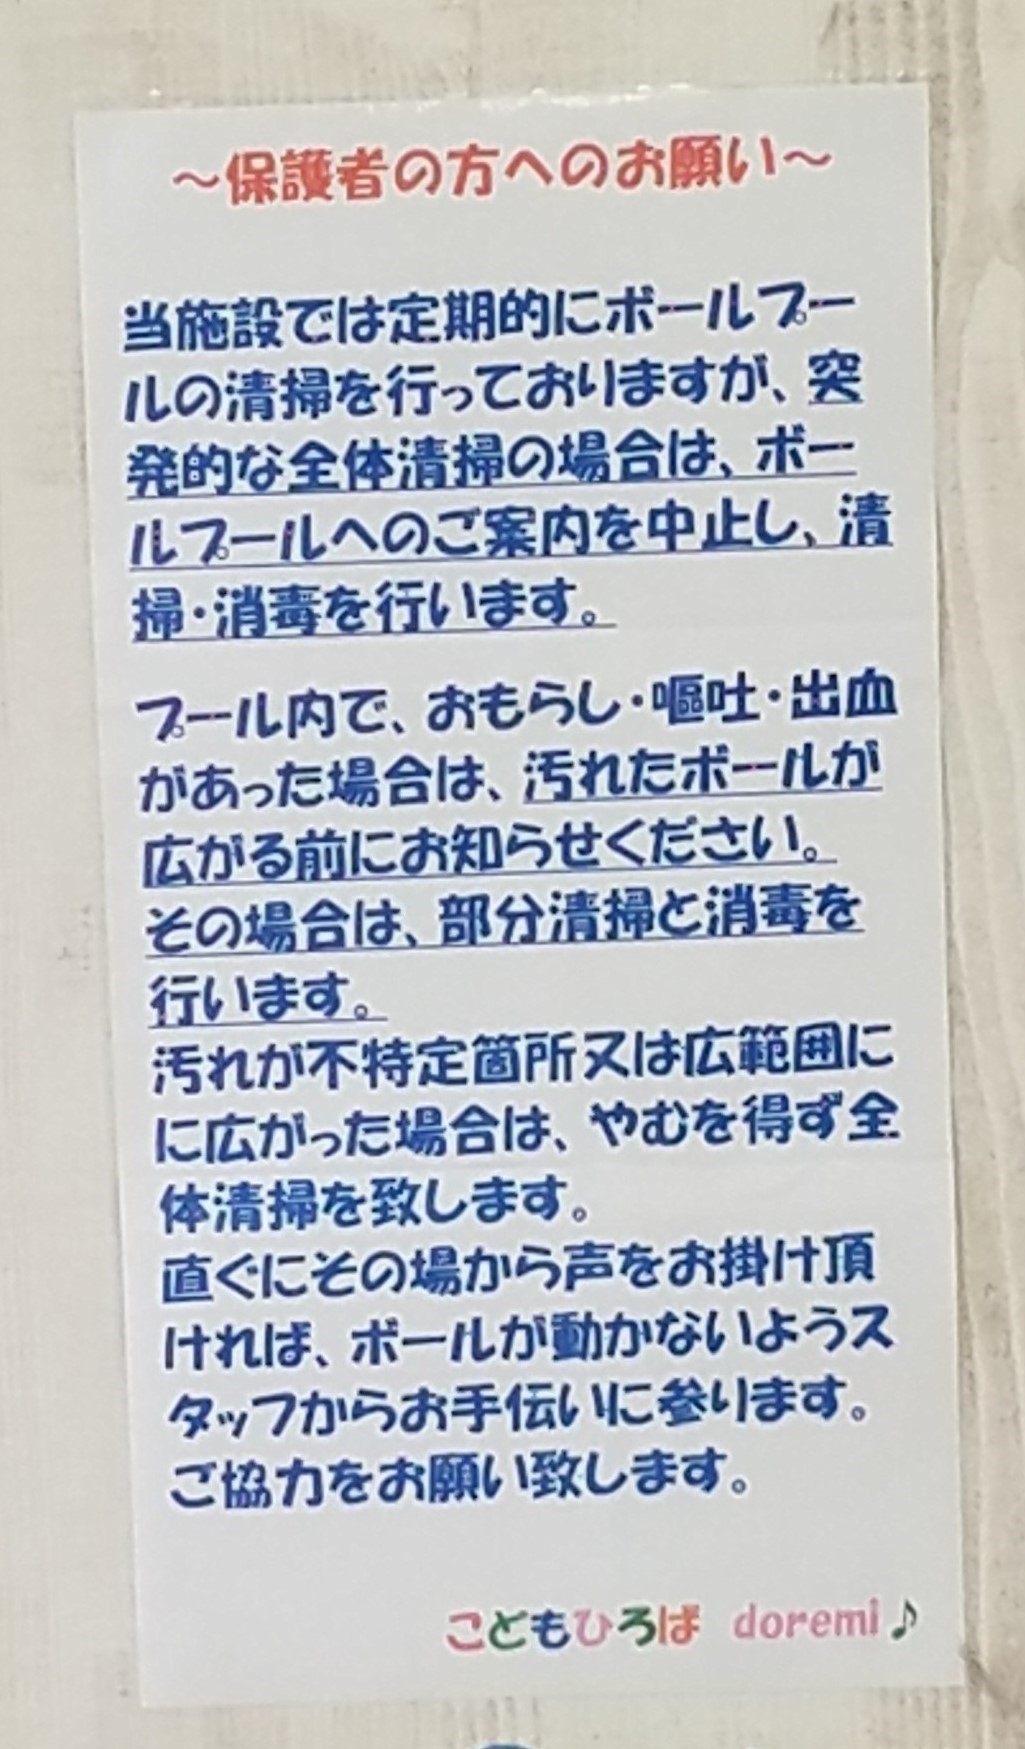 ～保護者の方へのお願い～
当施設では定期的にボールプー
ルの清掃を行っておりますが、突
発的な全体清掃の場合は、ボー
ルプールへのご案内を中止し、清
掃・消毒を行います。
プール内で、おもらし・嘔吐・出血
があった場合は、汚れたボールが
広がる前にお知らせください。
その場合は、部分清掃と消毒を
行います。
汚れが不特定箇所又は広範囲に
に広がった場合は、やむを得ず全
体清掃を致します。
直ぐにその場から声をお掛け頂
ければ、ボールが動かないようス
タッフからお手伝いに参ります。
ご協力をお願い致します。
こどもひろば doremi♪